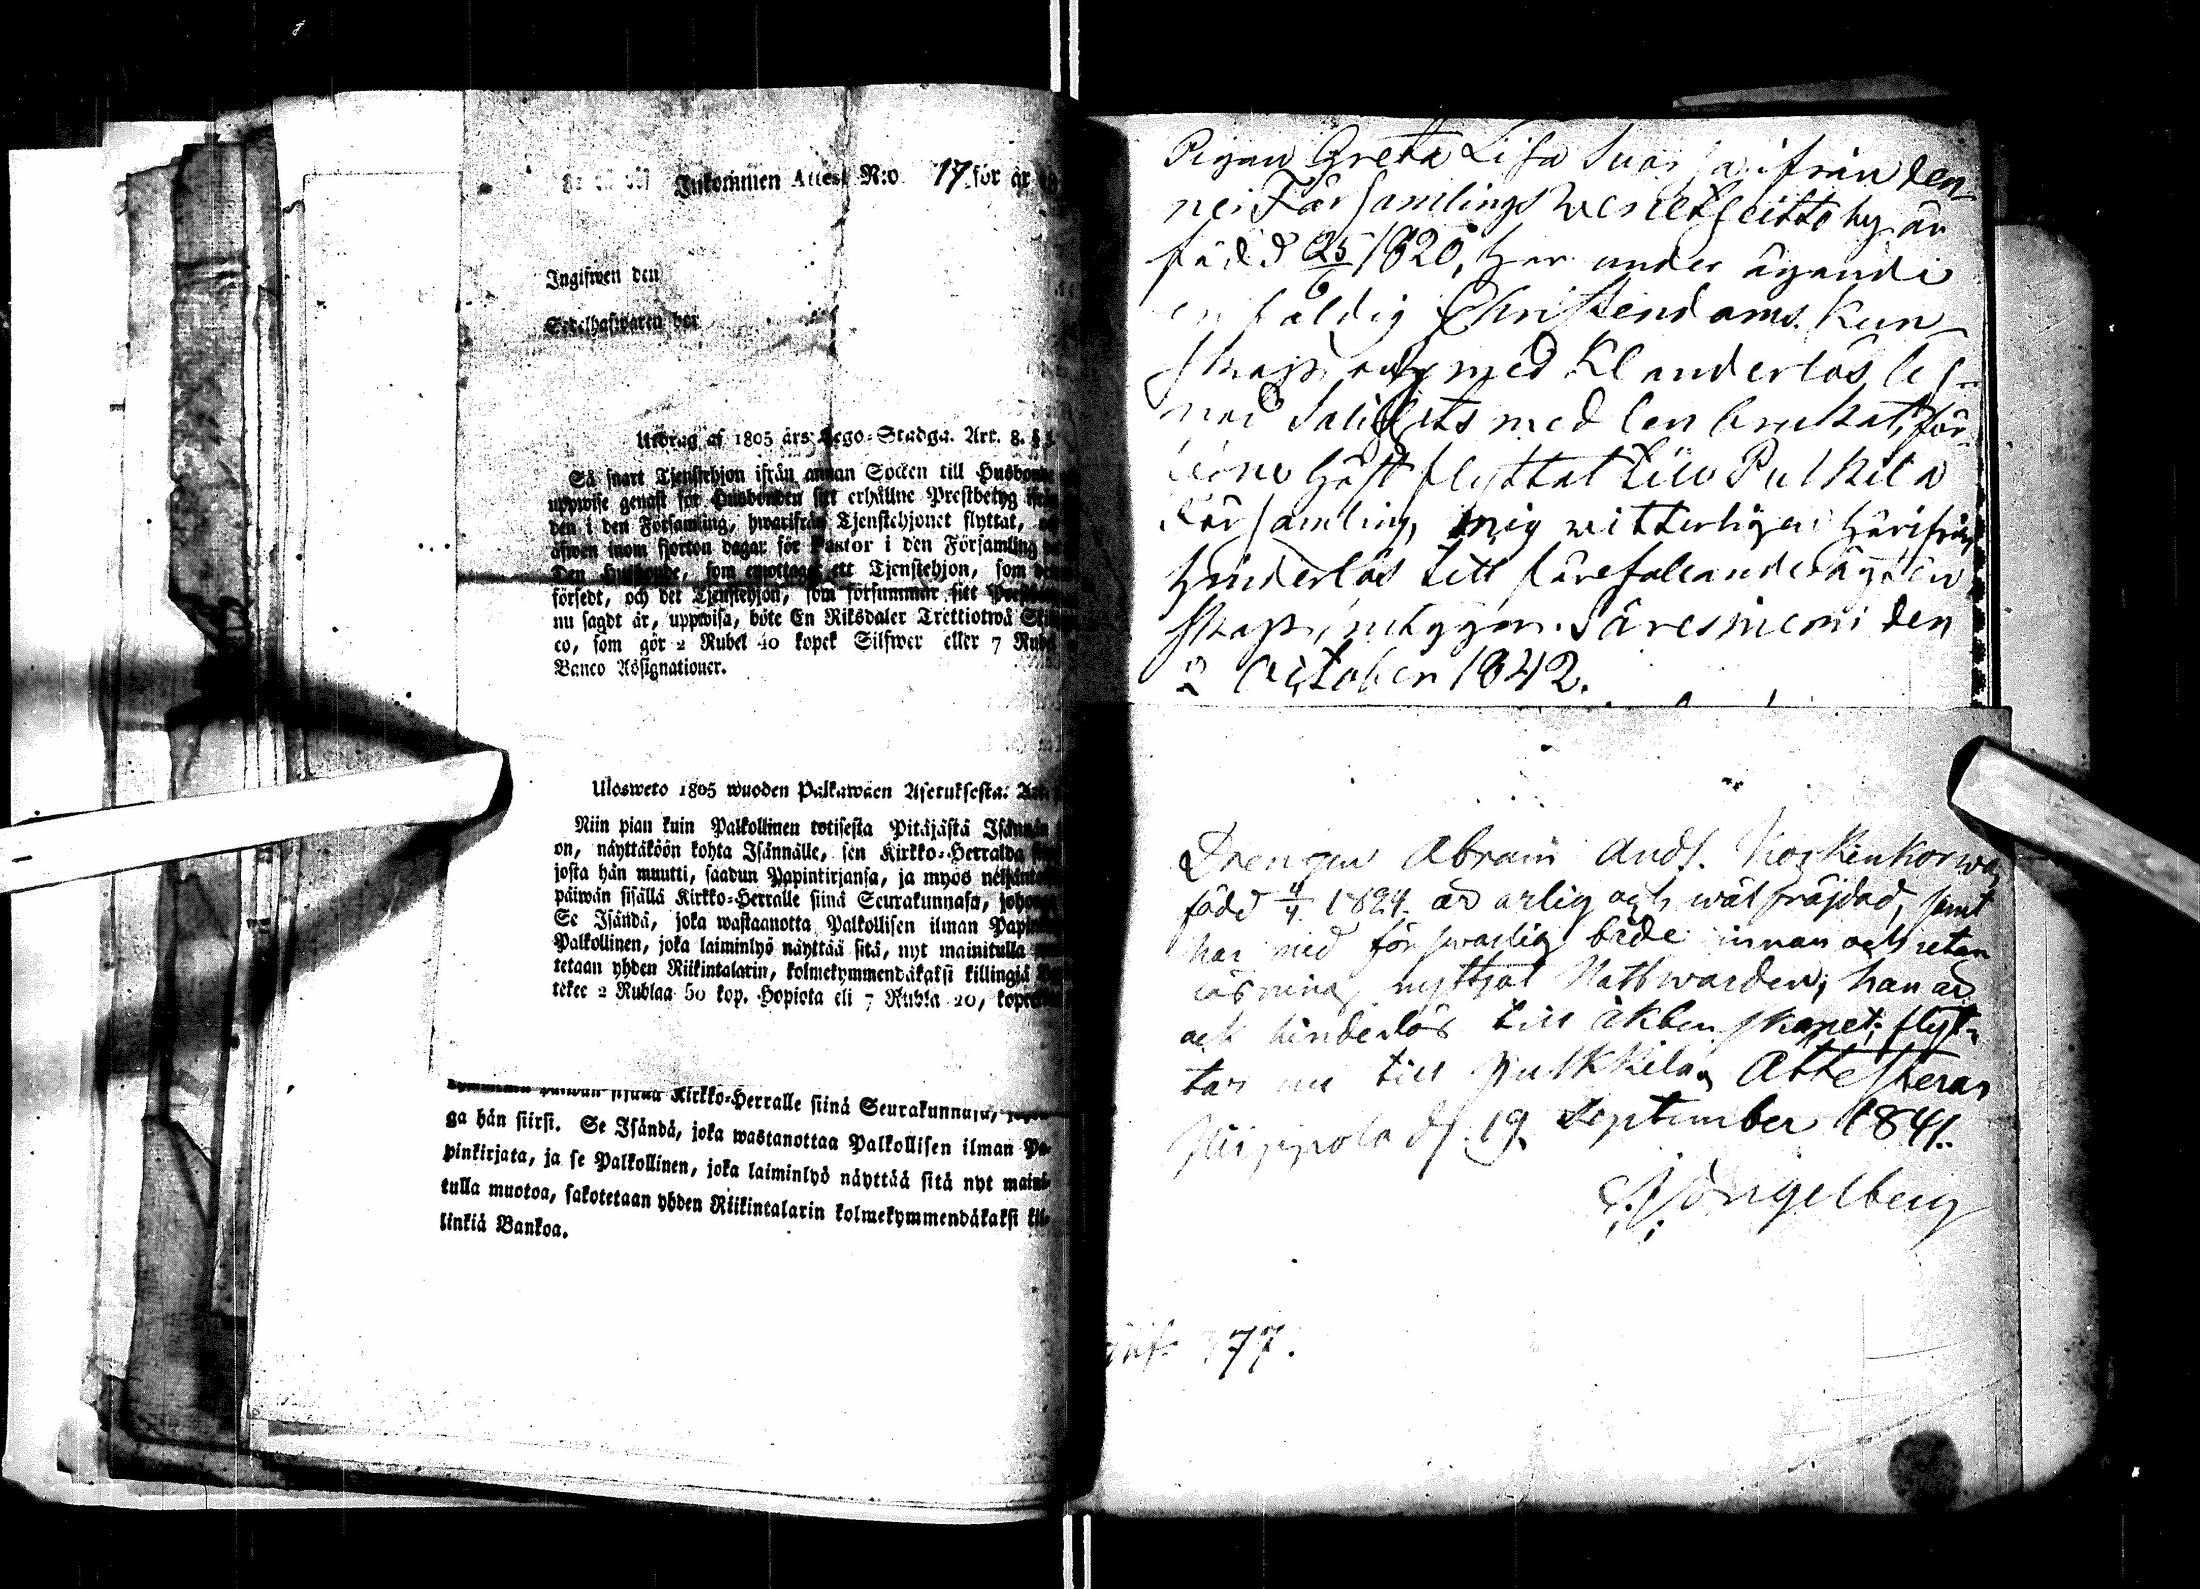 Inkommen Attest N:o 17 för år
Ingifwen den
Sedelhafwaren bor
Utdrag af 1805 års Lego-Stadga. Art. 8. §
Så snart Tjenstehjon ifrån annan Socken till Husbonde
uppwise genast för Husbonden sitt erhållne Prestbetyg
den i den Församling, hwarifrån Tjenstehjonet flyttat,
äfwen inom fjorton dagar för Pastor i den Församling
Den Husbonde, som emottager ett Tjenstehjon, som
försedt, och det Tjenstehjon, som försummar sitt
nu sagdt är, uppwisa, böte En Riksdaler Trettiotwå
co, som gör 2 Rubel 40 kopek Silfwer eller 7 Rubel
Banco Assignationer.
Ulosweto 1805 wuoden Palkawäen Asetuksesta.
Niin pian kuin Palkollinen toisesta Pitäjästä Isännän
on, näyttäköön kohta Isännälle, sen Kirkko-Herralda
josta hän muutti, saadun Papinkirjansa, ja myös
päiwän sisällä Kirkko-Herralle siinä Seurakunnasa,
Se Isändä, joka wastaanotta Palkollisen ilman
Palkollinen, joka laiminlyö näyttää sitä, nyt mainitulla
tetaan yhden Riikintalarin, kolmekymmendäkaksi killingiä
tekee 2 Rublaa 50 kop. Hopiota eli 7 Rubla 20,
päiwän sisällä Kirkko-Herralle siinä Seurakunnasa,
ga hän siirsi. Se Isändä, joka wastanottaa Palkollisen ilman Pa-
pinkirjata, ja se Palkollinen, joka laiminlyö näyttää sitä nyt maini-
tulla muotoa, sakotetaan yhden Riikintalarin kolmekymmendäkaksi kil-
linkiä Bankoa.
Pigan Greta Lisa ifrån den-
na Församlings by är
född 25/6 1820, har under ägande
en Christendoms Kun
skap och med Klanderlös lef-
nad Salighets medlen brukat, för-
höst flyttat till Pulkila
Församling, mig witterligen härifrån
hinderlös till förefallande ägten
skap, intygar. Säresniemi den
2 October 1842.
Drengen Abram Ands. Koskenkorwa,
född 4/4 1824. är ärlig och wäl fräjdad, samt
har med förswarlig både innan och utan
läsning, nyttjat Nattwarden; han är
ock hinderlös till äktenskapet; flyt-
tar nu till Pulkkila, Attesteras
Piippola d. 19 September 1841.
Engelberg
377.